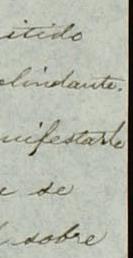 itido
olindante.
anifestarle
e se
l sobre